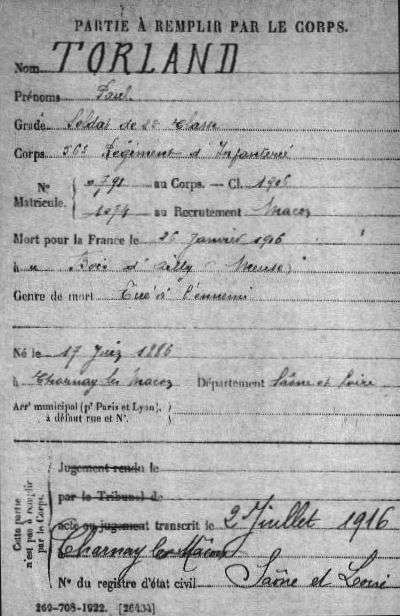 PARTIE À REMPLIR PAR LE CORPS.
Nom TORLAND
Prénoms Paul
Grade Soldat de 2e classe
Corps 56e Régiment d'Infanterie
N° Matricule. { 0791 au Corps. — Cl. 1906
1074 au Recrutement Macon
Mort pour la France le 26 Janvier 1916
à u Bois d'ailly (Meuse)
Genre de mort Tué à l'ennemi
Né le 17 Juin 1886
à Charnay les Macon Département Saône et Loire
Arr¹ municipal (pʳ Paris et Lyon), à défaut rue et N°.
Cette partie n'est pas à remplir par le Corps.
Jugement rendu le
par le Tribunal de
acte ou jugement transcrit le 2 Juillet 1916
Charnay les Mâcon
N° du registre d'état civil Saône et Loire
260-708-1922. [26434]